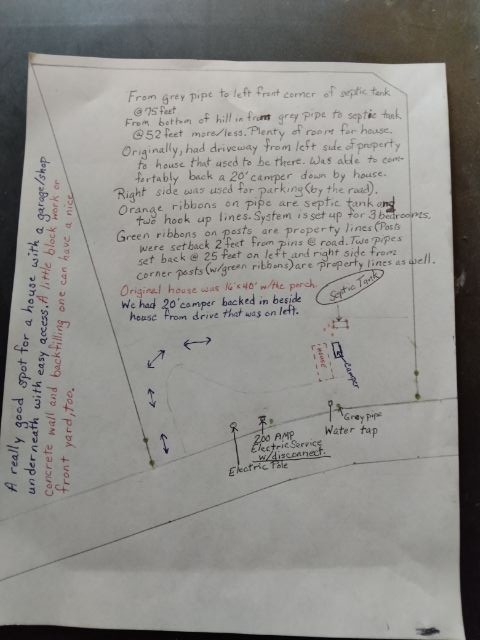 From grey pipe to left front corner of septic tank
@ 75 feet
From bottom of hill in from grey pipe to septic tank
@ 52 feet more/less. Plenty of room for house.
Originally, had driveway from left side of property
to house that used to be there. Was able to com-
fortably back a 20' camper down by house.
Right side was used for parking (by the road).
Orange ribbons on pipe are septic tank and
two hook up lines. System is set up for 3 bedrooms.
Green ribbons on posts are property lines (Posts
were setback 2 feet from pins @ road. Two pipes
set back @ 25 feet on left and right side from
corner posts (w/green ribbons) are property lines as well.
Original house was 16'x40' w/the porch.
We had 20' camper backed in beside
house from drive that was on left.
Septic Tank
House
Camper
Grey pipe
Water tap
200 AMP
Electric Service
w/disconnect.
Electric Pole
A really good spot for a house with a garage/shop
underneath with easy access. A little block work or
concrete wall and backfilling one can have a nice
front yard, too.